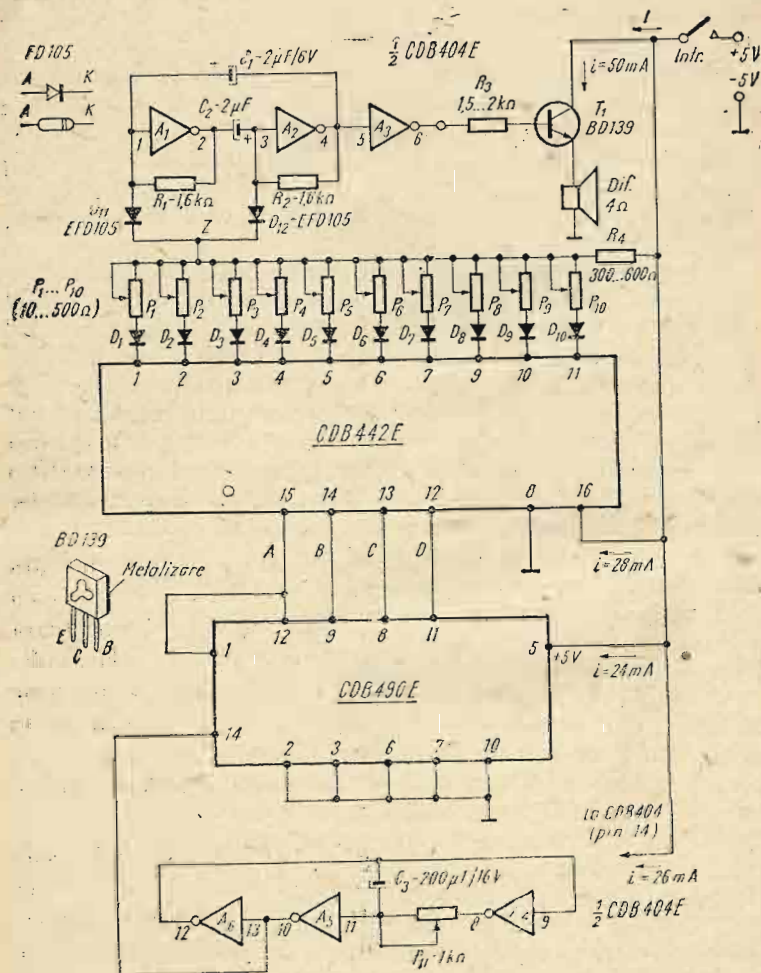 FD105
A K
A K
C₁-2µF/6V
½ CDB404E
I
Intr.
+5V
-5V
C₂-2µF
R₃
1,5...2kΩ
i=50mA
T₁
BD139
1 A₁ 2 + 3 A₂ 4 5 A₃ 6
R₁-1,6kΩ
R₂-1,6kΩ
EFD105
Z
D₁₂-EFD105
Dif.
4Ω
R₄
300...600Ω
P₁...P₁₀
(10...500Ω)
P₁ P₂ P₃ P₄ P₅ P₆ P₇ P₈ P₉ P₁₀
D₁ D₂ D₃ D₄ D₅ D₆ D₇ D₈ D₉ D₁₀
1 2 3 4 5 6 7 9 10 11
CDB442E
15 14 13 12 8 16
BD139
Metalizare
E C B
A B C D
i=28mA
12 9 8 11
1
5
+5V
i=24mA
CDB490E
14
2 3 6 7 10
la CDB404
(pin 14)
i=26mA
C₃-200µF/16V
½ CDB404E
12 A₆ 13 10 A₅ 11 8 9
P₁₁-1kΩ